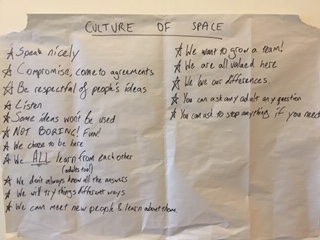 CULTURE OF SPACE
☆ Speak nicely
☆ Compromise, come to agreements
☆ Be respectful of people's ideas
☆ Listen
☆ Some ideas won't be used
☆ NOT BORING! Fun!
☆ We choose to be here
☆ We ALL learn from each other
(adults too!)
☆ We don't always know all the answers
☆ We will try things different ways
☆ We can meet new people & learn about them
☆ We want to grow a team!
☆ We are all valued here
☆ We love our differences
☆ You can ask any adult any question
☆ You can ask to stop anything if you need